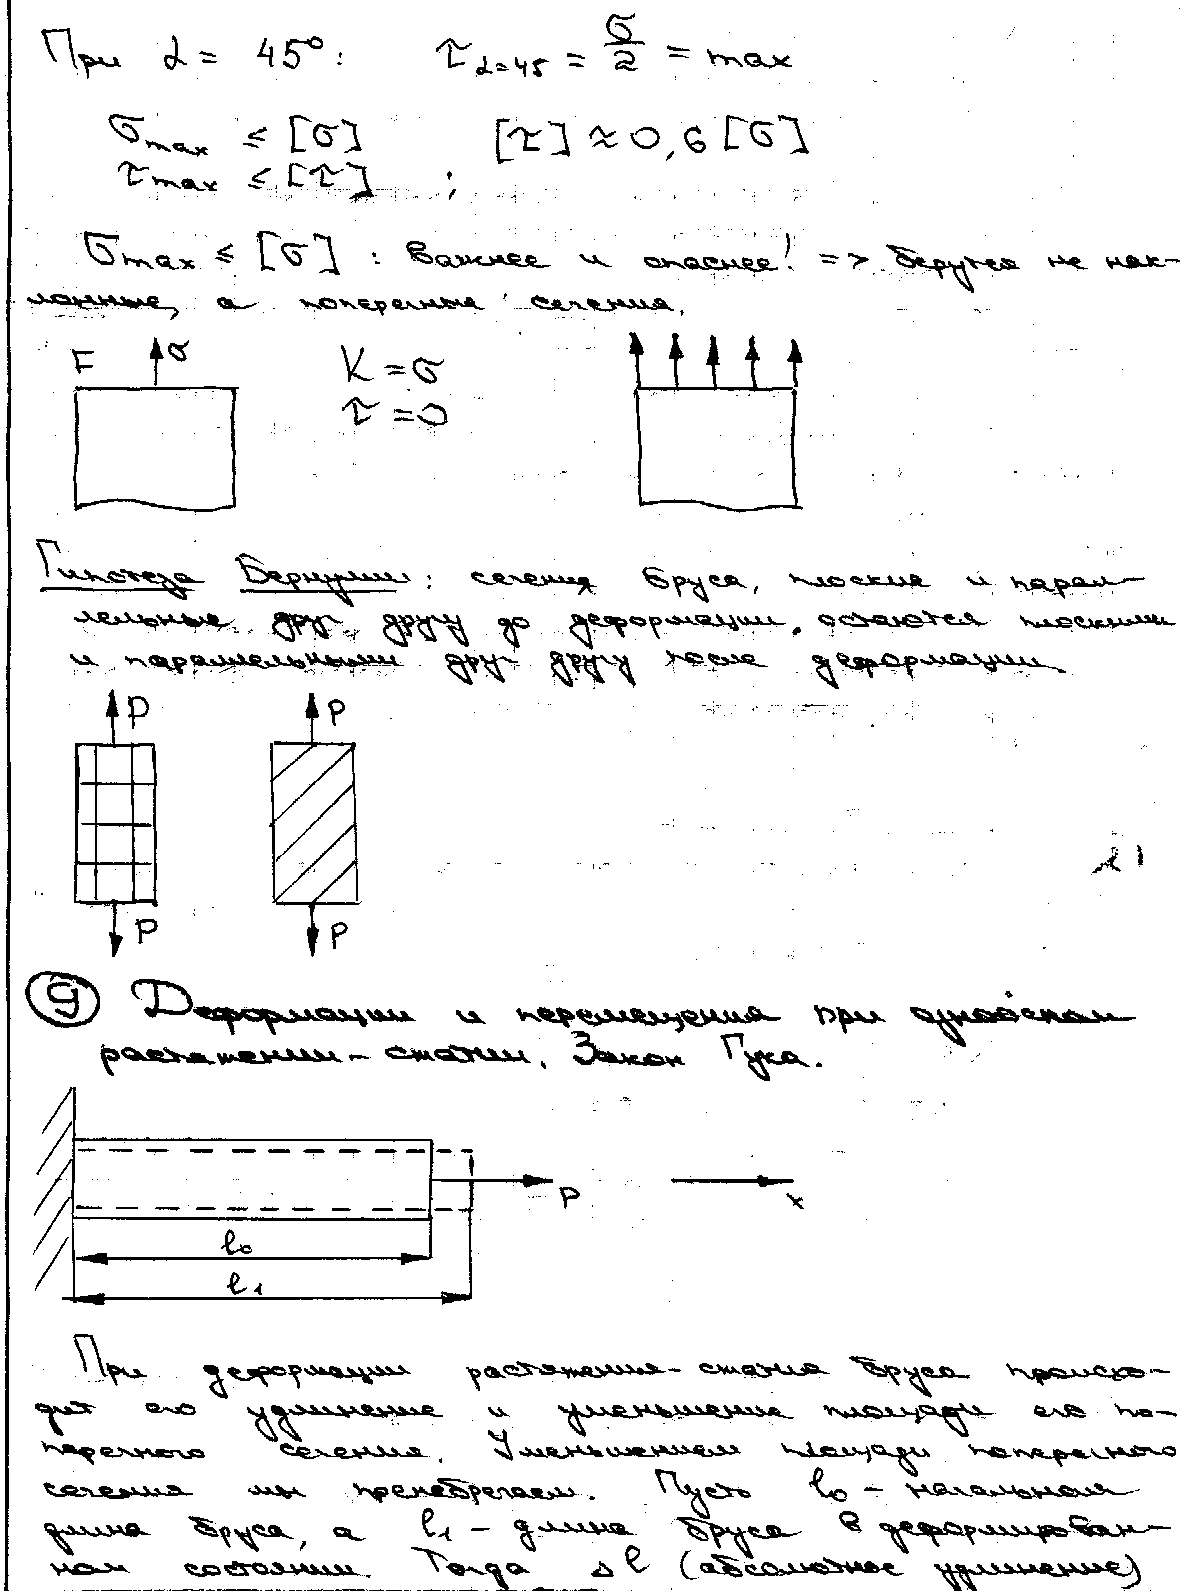 При α = 45°: τ α=45 = σ/2 = max
σmax ≤ [σ] [τ] ≈ 0,6 [σ]
τmax ≤ [τ] ;
σmax ≤ [σ] : важнее и опаснее! => берутся не нак-
лонные, а поперечные сечения.
F σ K = σ
τ = 0
Гипотеза Бернулли: сечения бруса, плоские и парал-
лельные друг другу до деформации, остаются плоскими
и параллельными друг другу после деформации.
P P
P P
9 Деформации и перемещения при одноосном
растяжении-сжатии. Закон Гука.
P x
l₀
l₁
При деформации растяжения-сжатия бруса происхо-
дит его удлинение и уменьшение площади его по-
перечного сечения. Уменьшением площади поперечного
сечения мы пренебрегаем. Пусть l₀ - начальная
длина бруса, а l₁ - длина бруса в деформирован-
ном состоянии. Тогда Δl (абсолютное удлинение)